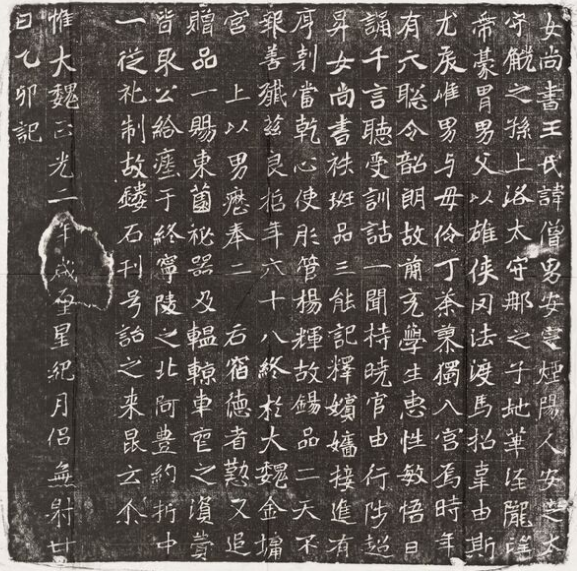 女尚書王氏諱僧男安定煙陽人安定太
守觥之孫上洛太守那之子地華涇隴望
帝豪胄男父以雄俠罔法渡馬招辜由斯
尤戾唯男与毋伶丁荼蓼獨入宮焉時年
有六聡令韶朗故簡充學生惠性敏悟日
誦千言聽受訓詁一聞持曉官由行陟超
昇女尚書秩班品三能記釋嬪嬙接進有
序剋當乾心使彤管楊輝故錫品二天不
報善殲茲良喆年六十八終於大魏金墉
宮上以男歷奉二后宿德者懃又追
贈品一賜東薗祕器及轀輬車窆之資費
皆取公給瘞于終寧陵之北阿豊約折中
一從礼制故鐫石刊号詒之来昆云尒
惟大魏正光二年歲至星紀月侣無射廿
日乙卯記